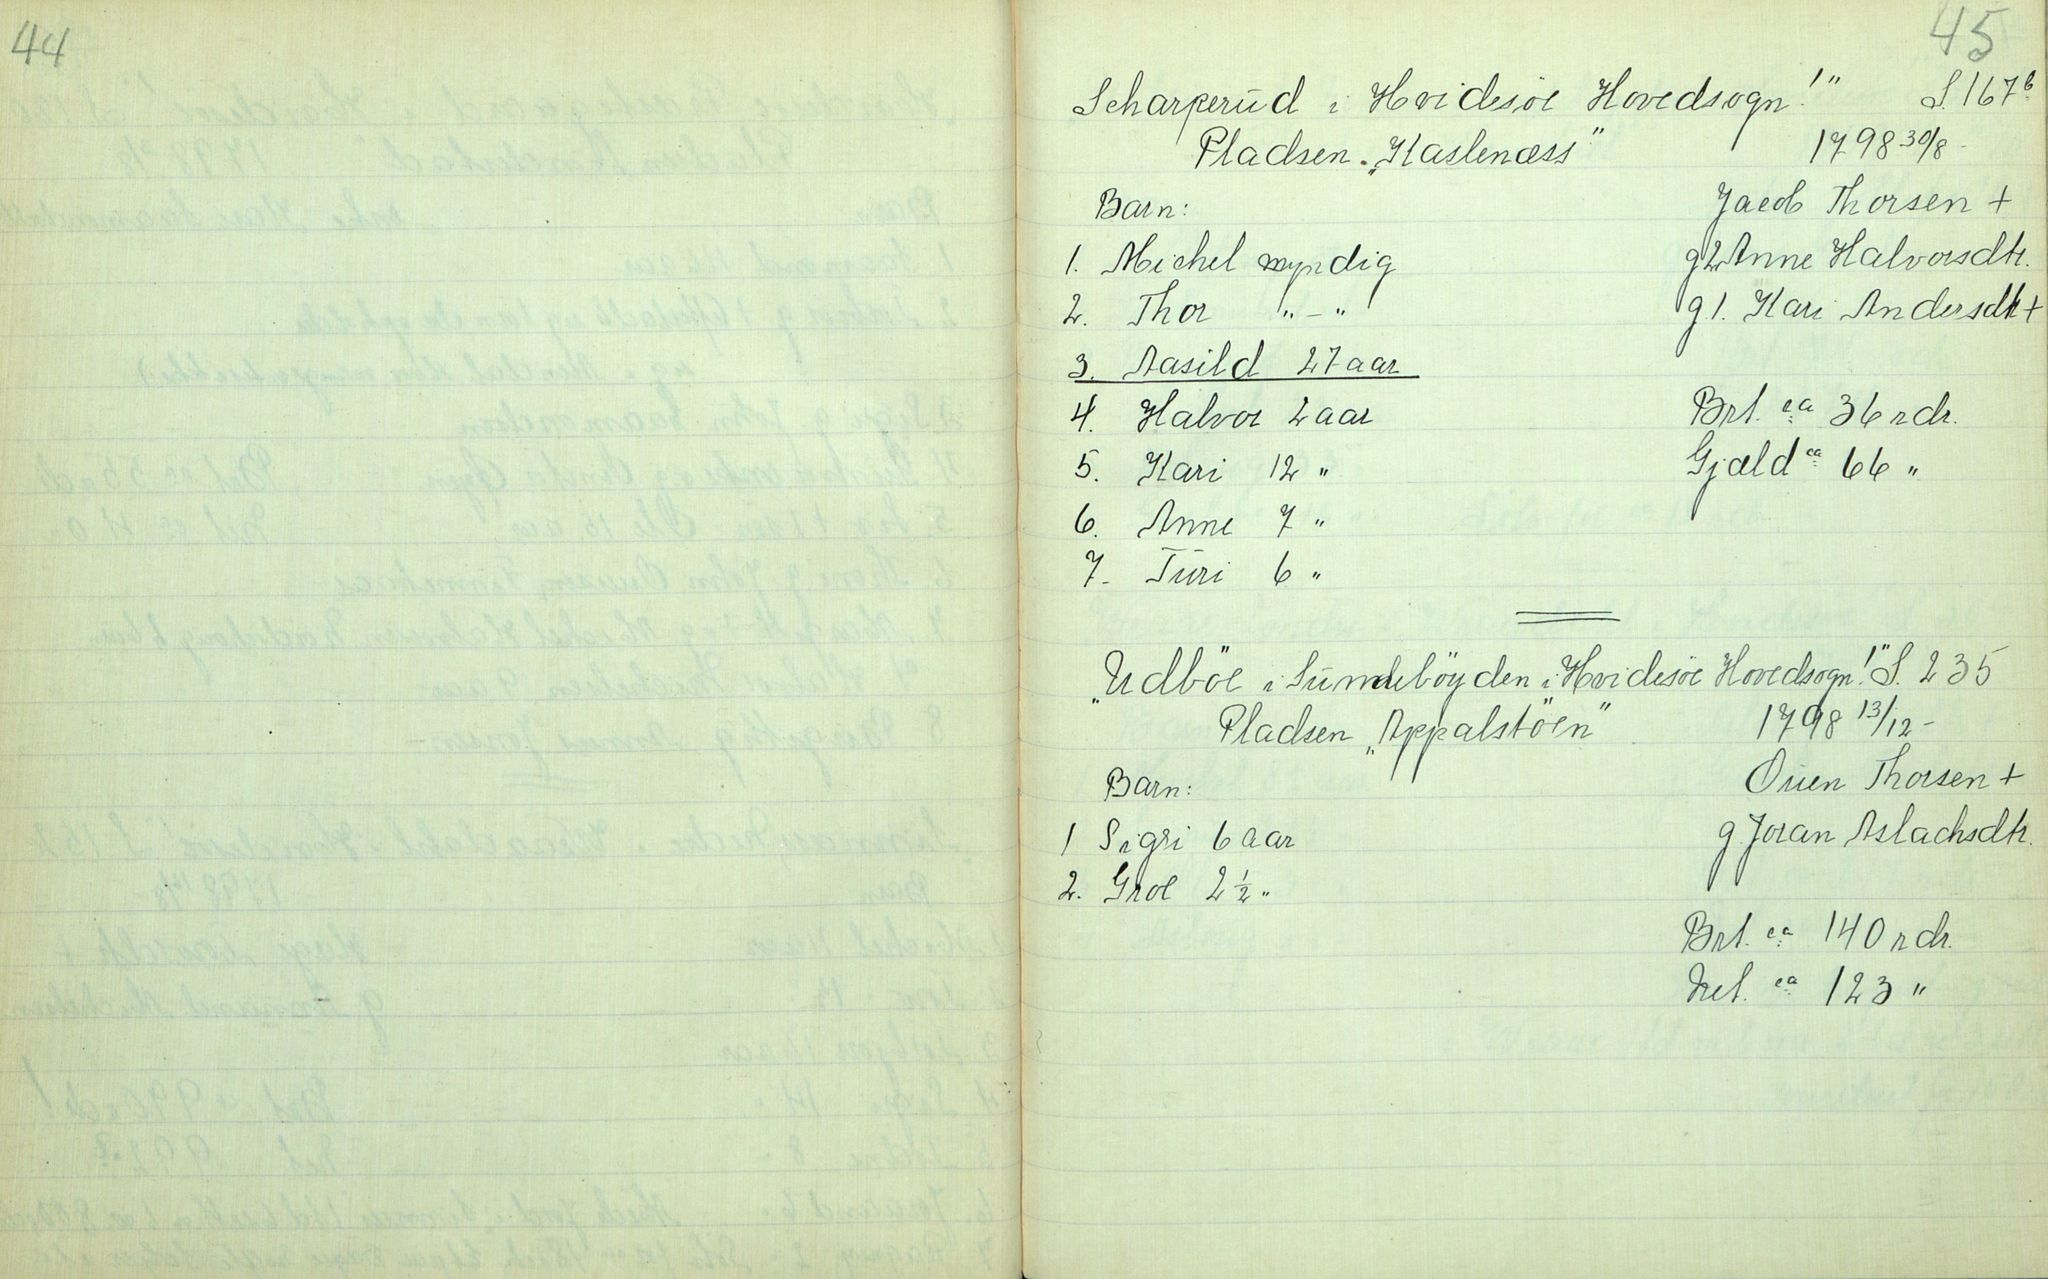 44
45
Scharperud i Hvidesöe Hovedsogn!" S. 167b
Pladsen „Kaslenæss" 1798 30/8 -
Barn: Jacob Thorsen +
1. Michel myndig g2 Anne Halvorsdtr.
2. Thor " - " g 1. Kari Andersdtr +
3. Aasild 27 aar
4. Halvor 2 aar Brt. ca 36 rdr.
5. Kari 12 " Gjæld ca 66 "
6. Anne 7 "
7- Turi 6 "
„Udböe i Sundeböyden i Hvidesöe Hovedsogn!" S. 235
Pladsen „Appalstöen" 1798 13/12 -
Barn: Ouen Thorsen +
1 Sigri 6 aar g. Joran Aslachsdtr.
2. Groe 2 1/2 "
Brt. ca 140 rdr.
Net. ca 123 "